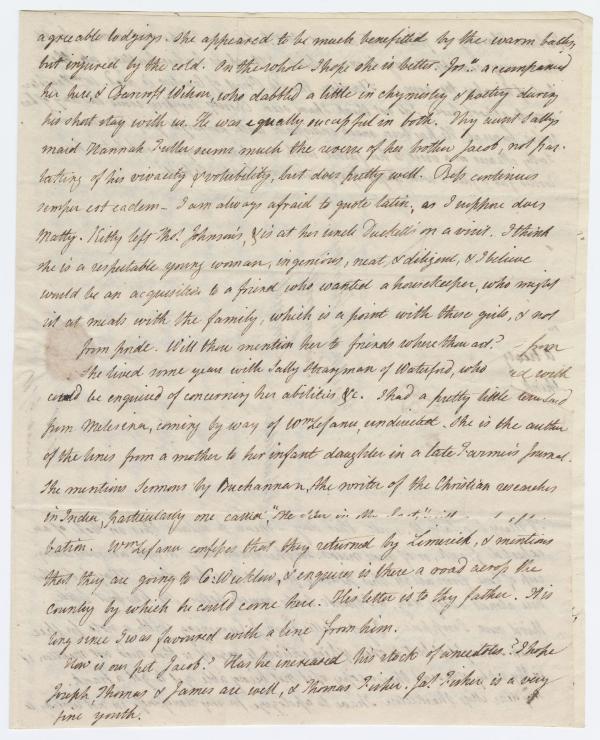 agreeable lodgings. She appeared to be much benefitted by the warm baths,
but injured by the cold. On the whole I hope she is better. Jos.h accompanied
her here, & Bancroft Wilson, who dabbled a little in chymistry & poetry during
his short stay with us. He was equally successful in both. Thy aunt Sally's
maid Hannah Fuller seems much the reverse of her brother Jacob, not par-
taking of his vivacity & volubility, but does pretty well. Bess continues
semper est eadem – I am always afraid to quote latin, as I suppose does
Matty. Kitty left Tho.s Johnson's, & is at her uncle Duckett's on a visit. I think
she is a respectable young woman, ingenious, neat, & diligent, & I believe
would be an acquisition to a friend who wanted a housekeeper, who might
sit at meals with the family, which is a point with these girls, & not
from pride. Will thou mention her to friends where thou art?
She lived some years with Sally Strangman of Waterford, who
could be enquired of concerning her abilities &c. I had a pretty little
from Melesina, coming by way of Wm Lefanu, undirected. She is the author
of the lines from a mother to her infant daughter in a late Farmer's Journal.
She mentions Sermons by Buchannan, the writer of the Christian researches
in India, particularly one called "The Star in the East,"
bation. Wm Lefanu confesses that they returned by Limerick, & mentions
that they are going to Co: Wicklow, & enquires is there a road across the
country by which he could come here. His letter is to thy father. It is
long since I was favoured with a line from him.
How is our pet Jacob? Has he increased his stock of anecdotes? I hope
Joseph, Thomas & James are well, & Thomas Fisher. Ja.s Fisher is a very
fine youth.